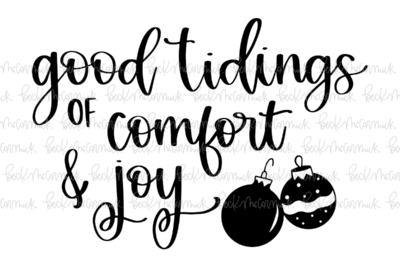 good tidings
OF comfort
& joy